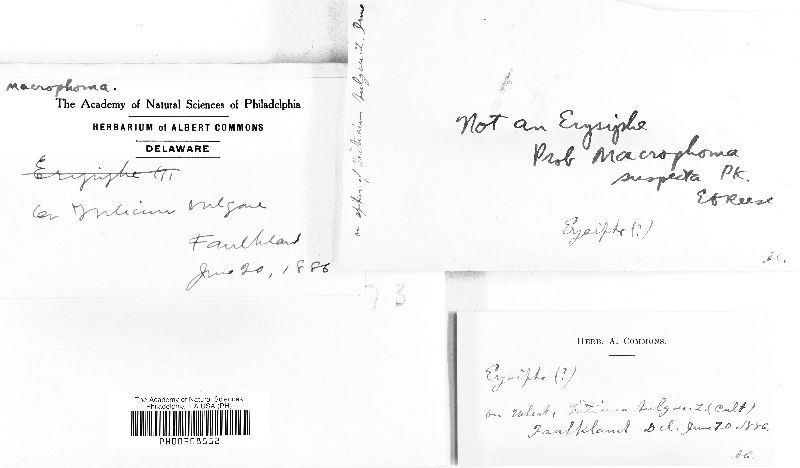 Macrophoma.
The Academy of Natural Sciences of Philadelphia
HERBARIUM of ALBERT COMMONS
DELAWARE
Erysiphe (?)
on Triticum vulgare
Faulkland
June 20, 1886
on spikes of Triticum vulgare L. June
Not an Erysiphe
Prob Macrophoma
suspecta Pk.
E B Reese
Erysiphe (?)
A.C.
73
HERB. A. COMMONS.
Erysiphe (?)
on wheat, Triticum vulgare L. (cult)
Faulkland Del. June 20. 1886.
A.C.
The Academy of Natural Sciences
Philadelphia, PA USA (PH)